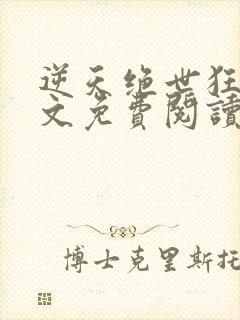 逆天绝世狂
文免費閱讀
博士克里斯托